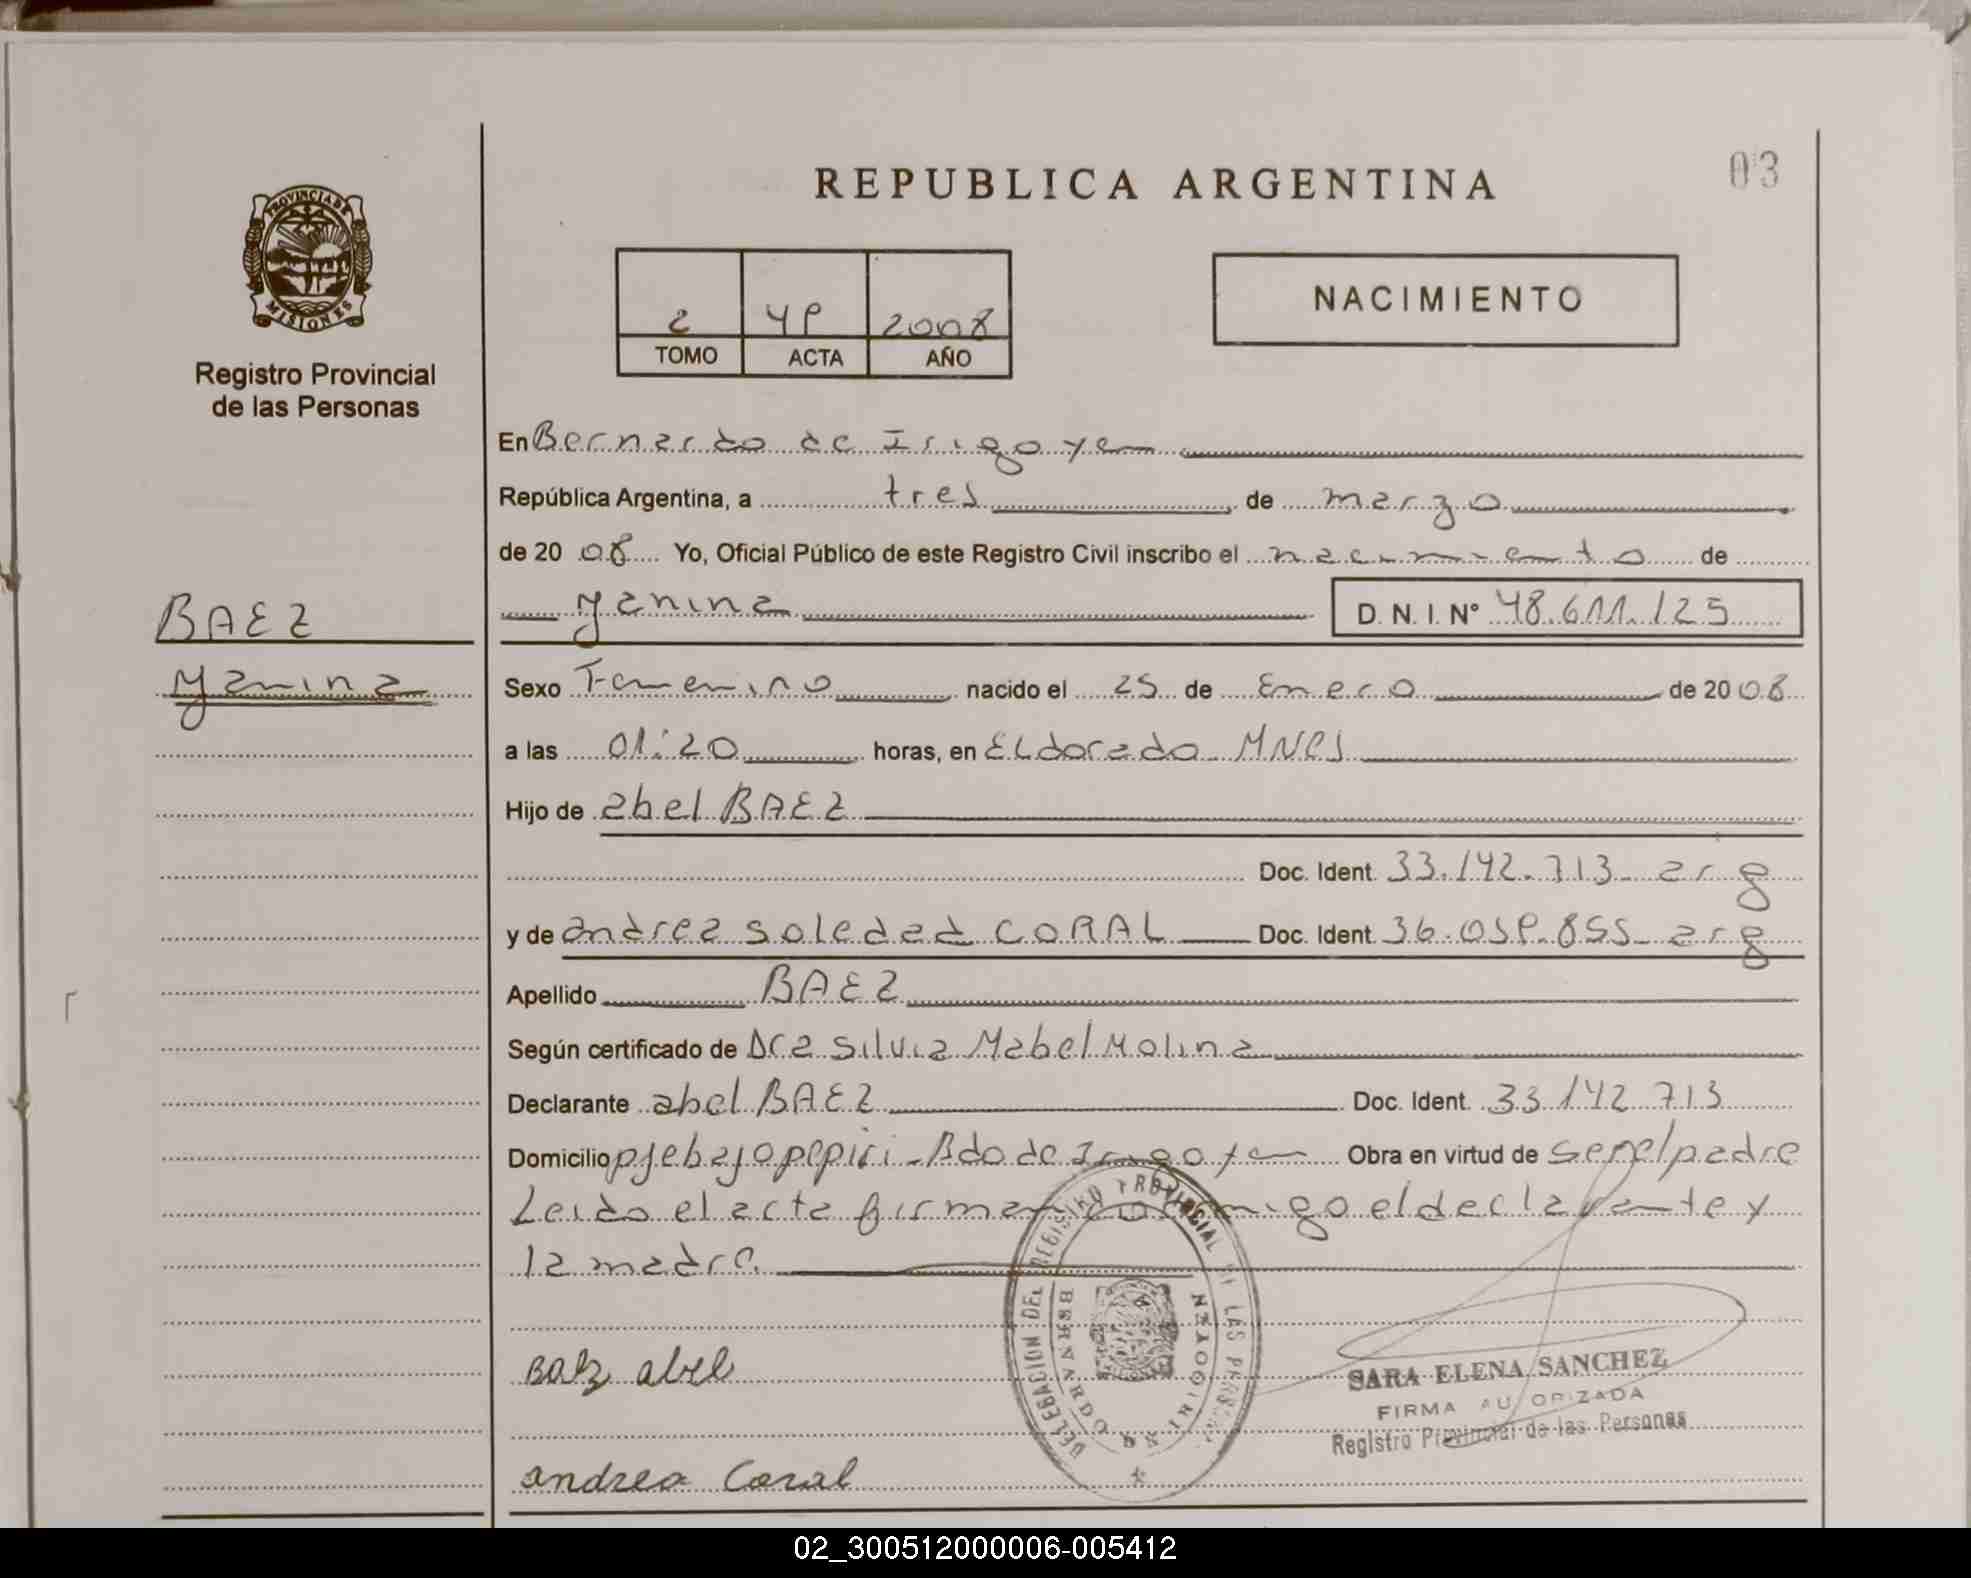 REPUBLICA ARGENTINA
03
PROVINCIA DE
MISIONES
Registro Provincial
de las Personas
2 49 2008
TOMO ACTA AÑO
NACIMIENTO
En Bernardo de Irigoyen
República Argentina, a tres de marzo
de 20 08 Yo, Oficial Público de este Registro Civil inscribo el nacimiento de
Yanina D. N. I. N° 48.611.125
BAEZ
Yanina
Sexo Femenino nacido el 25 de Enero de 20 08
a las 01:20 horas, en Eldorado MNES
Hijo de abel BAEZ
Doc. Ident. 33.142.713- arg
y de andrea soledad CORAL Doc. Ident. 36.059.855- arg
Apellido BAEZ
Según certificado de Dra Silvia Mabel Molina
Declarante abel BAEZ Doc. Ident. 33 142 713
Domicilio pje bajo pepiri - Bdo de Irigoyen Obra en virtud de ser el padre
Leido el acta firman conmigo el declarante y
la madre
Baez abel
andrea Coral
DELEGACION DEL REGISTRO PROVINCIAL DE LAS PERSONAS
BERNARDO DE IRIGOYEN
SARA ELENA SANCHEZ
FIRMA AUTORIZADA
Registro Provincial de las Personas
02_300512000006-005412